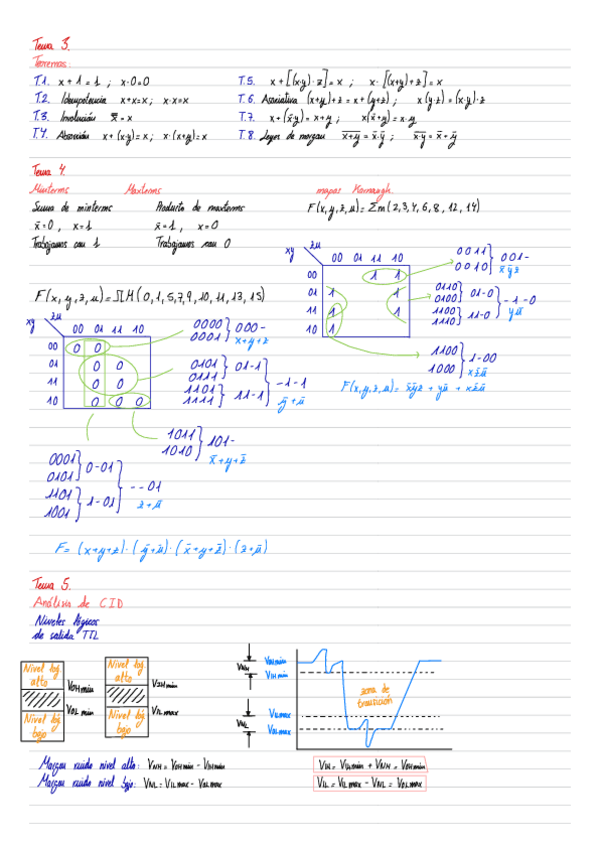 Tema 3.
Teoremas:
T.1. x + 1 = 1 ; x·0=0
T.2. Idempotencia x+x=x ; x·x=x
T.3. Involución x̿ = x
T.4. Absorción x + (x·y) = x ; x·(x+y) = x
T.5. x + [(x·y)·z] = x ; x·[(x+y)+z] = x
T.6. Asociativa (x+y)+z = x+(y+z) ; x(y·z) = (x·y)·z
T.7. x + (x̄·y) = x+y ; x(x̄+y) = x·y
T.8. Leyes de morgan
Tema 4.
Minterms Maxterms
Suma de minterms Producto de maxterms
x̄=0, x=1 x̄=1, x=0
Trabajamos con 1 Trabajamos con 0
mapas Karnaugh.
F(x,y,z,u) = Σm(2,3,4,6,8,12,14)
xy zu
00 01 11 10
00 1 1
01 1 1
11 1 1
10 1
0011
0010 } 001-
x̄ȳz
0110
0100 } 01-0
1100
1110 } 11-0
-1-0
yū
1100
1000 } 1-00
xz̄ū
F(x,y,z,u) = x̄ȳz + yū + xz̄ū
F(x,y,z,u) = ΠM(0,1,5,7,9,10,11,13,15)
xy zu
00 01 11 10
00 0 0
01 0 0
11 0 0
10 0 0 0
0000
0001 } 000-
x+y+z
0101
0111 } 01-1
1101
1111 } 11-1
-1-1
ȳ+ū
1011
1010 } 101-
x̄+y+z̄
0001
0101 } 0-01
1101
1001 } 1-01
--01
z+ū
F= (x+y+z)·(ȳ+ū)·(x̄+y+z̄)·(z+ū)
Tema 5.
Análisis de CID
Niveles lógicos
de salida TTL
Nivel lóg.
alto
VOHmin
VOLmin
Nivel lóg
bajo
Nivel lóg.
alto
VIHmin
VILmax
Nivel lóg
bajo
VNH
VOHmin
VIHmin
VNL
VILmax
VOLmax
zona de
transición
Margen ruido nivel alto: VNH = VOHmin - VIHmin
Margen ruido nivel bajo: VNL = VILmax - VOLmax
VIH = VIHmin + VNH = VOHmin
VIL = VILmax - VNL = VOLmax